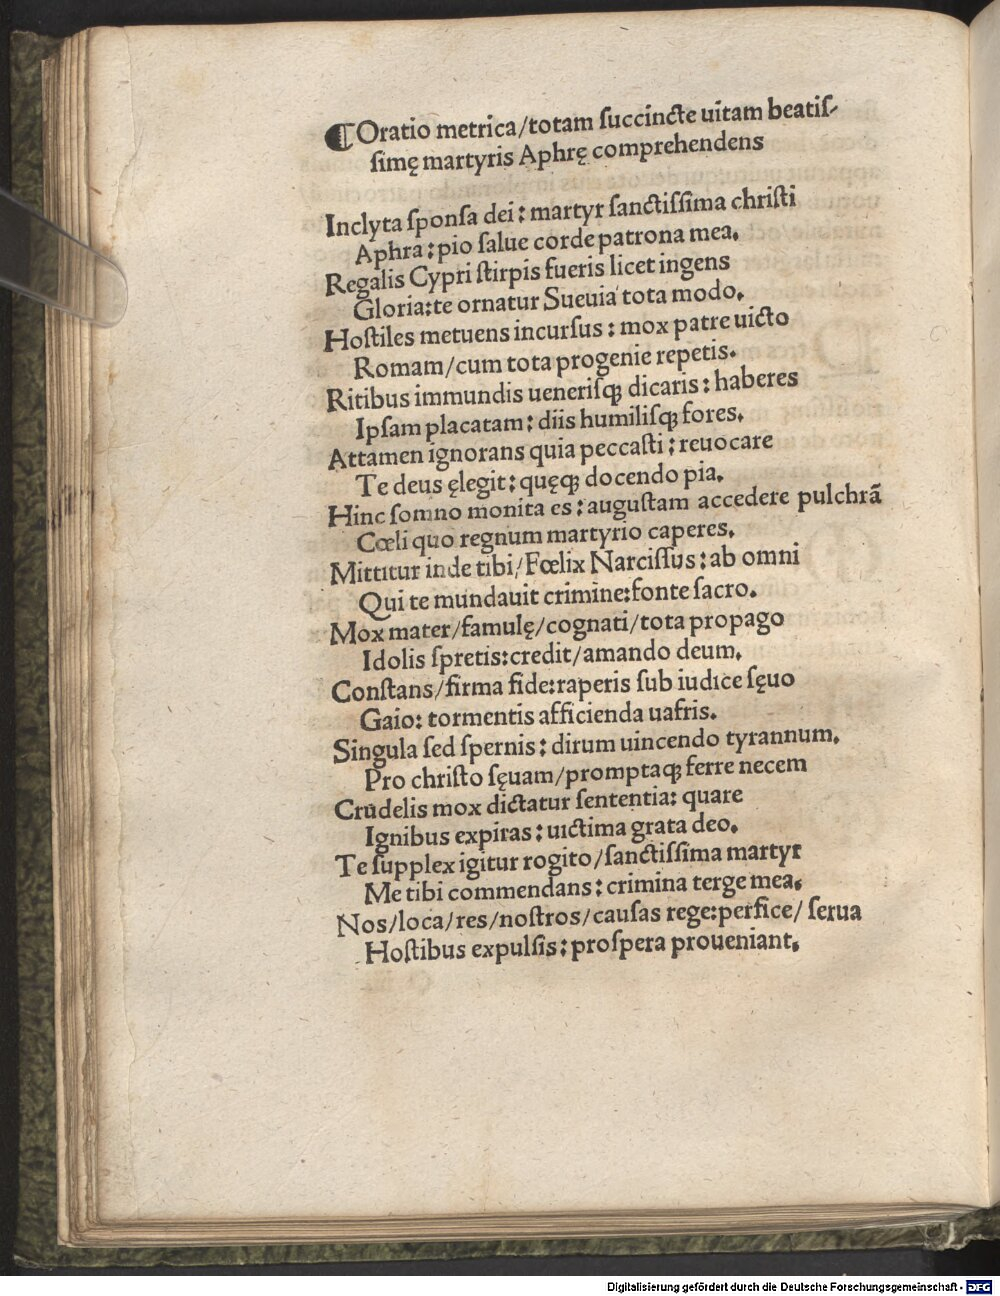 ⸿Oratio metrica/totam ſuccincte uitam beatiſ-
ſimę martyris Aphrę comprehendens
Inclyta ſponſa dei: martyr ſanctiſſima chriſti
Aphra: pio ſalue corde patrona mea.
Regalis Cypri ſtirpis fueris licet ingens
Gloria: te ornatur Sueuia tota modo.
Hoſtiles metuens incurſus: mox patre uicto
Romam/cum tota progenie repetis.
Ritibus immundis ueneriſꝗ dicaris: haberes
Ipſam placatam: diis humiliſꝗ fores.
Attamen ignorans quia peccaſti: reuocare
Te deus ęlegit: quęꝗ docendo pia.
Hinc ſomno monita es: auguſtam accedere pulchrã
Cœli quo regnum martyrio caperes.
Mittitur inde tibi/Fœlix Narciſſus: ab omni
Qui te mundauit crimine: fonte ſacro.
Mox mater/famulę/cognati/tota propago
Idolis ſpretis: credit/amando deum.
Conſtans/firma fide: raperis ſub iudice ſęuo
Gaio: tormentis afficienda uafris.
Singula ſed ſpernis: dirum uincendo tyrannum.
Pro chriſto ſęuam/promptaꝗ ferre necem
Crudelis mox dictatur ſententia: quare
Ignibus expiras: uictima grata deo.
Te ſupplex igitur rogito/ſanctiſſima martyr
Me tibi commendans: crimina terge mea.
Nos/loca/res/noſtros/cauſas rege: perfice/ ſerua
Hoſtibus expulſis: proſpera proueniant.
Digitalisierung gefördert durch die Deutsche Forschungsgemeinschaft - DFG